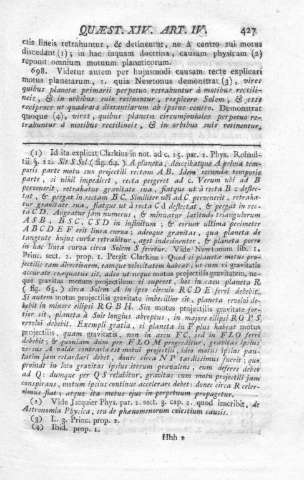 QUÆST. XIV. ART. IV. 427
ctis lineis retrahuntur, & detinentur, ne a centro sui motus
discedant (1); in hac inquam doctrina, causam physicam (2)
reponit omnium motuum planeticorum.
698. Videtur autem per hujusmodi causam recte explicari
motus planetarum, 1. quia Newtonus demonstrat (3), vires
quibus planetæ primarii perpetuo retrahuntur à motibus rectili-
neis, & in orbibus suis retinentur, respicere Solem, & esse
reciproce ut quadrata distantiarum ab ipsius centro. Demonstrat
quoque (4), vires, quibus planetæ circumjoviales perpetuo re-
trahuntur à motibus rectilineis, & in orbibus suis retinentur,
(1) Id ita explicat Clarkius in not. ad c. 25. par. 2. Phys. Rohaul-
tii § 22. Sit S Sol (fig. 62.) A planeta; ducaturque A
parte motu suo projectili rectam AB. Idem secunda temporis
parte, si nihil impediat, recta pergeret ad c. Verum ubi ad B
pervenerit, retrahatur gravitate sua, fiatque ut à recta B c deflec-
tat, & pergat in rectam BC. Similiter ubi ad C pervenerit, retraha-
tur gravitate sua, fiatque ut à recta C d deflectat, & pergat in rec-
ta CD. Augeatur jam numerus, & minuatur latitudo triangulorum
ASB, BSC, CSD in infinitum; & earum ultima perimeter
ABCDEF erit linea curva; adeoque gravitas, qua planeta de
tangente hujus curvæ retrahitur, aget indesinenter, & planeta
in hac linea curva circa Solem S feretur. Vide Newtonum lib. 1.
Princ. sect. 2. prop. 1. Pergit Clarkius: Quod si planetæ motus pro-
jectilis
accurate coæquatus sit, adeo ut neque motus projectilis gravitatem, ne-
que gravitas motum projectilem superet, sed in eam planeta R
(fig. 63.) circa Solem A in ipso circulo RCDE ferri debebit.
Si autem motus projectilis gravitate imbecillior sit, planeta revolvi de-
bebit in minore ellipsi RGBH. Sin motus projectilis gravitate for-
tior sit, planeta à Sole longius abreptus, in majore ellipsi RQPS
revolvi debebit. Exempli gratia, si planeta in F plus habeat motus
projectilis, quam gravitatis, non in arcu FC, sed in FLO ferri
debebit; & quoniam dum per FLOM progreditur, gravitas ipsius
versus A valde contraria est motui projectili, ideo motus ipsius pau-
latim jam retardari debet, donec circa NP tardissimus fuerit; cum
proinde in loco gravitas ipsius iterum prævalens, eum deferre debet
ad Q: dumque per QS relabitur, gravitas cum motu projectili jam
conspirans, motum ipsius continuo accelerare debet, donec circa R celer-
rimus fiat; atque ita motus ejus in perpetuum propagetur.
(2) Vide Jacquier Phys. par. 2. sect. 3. cap. 2. quod inscribit, de
Astronomia Physica, seu de phænomenorum cœlestium causis.
(3) L. 3. Princ. prop. 2.
(4) Ibid. prop. 1.
Hhh 2